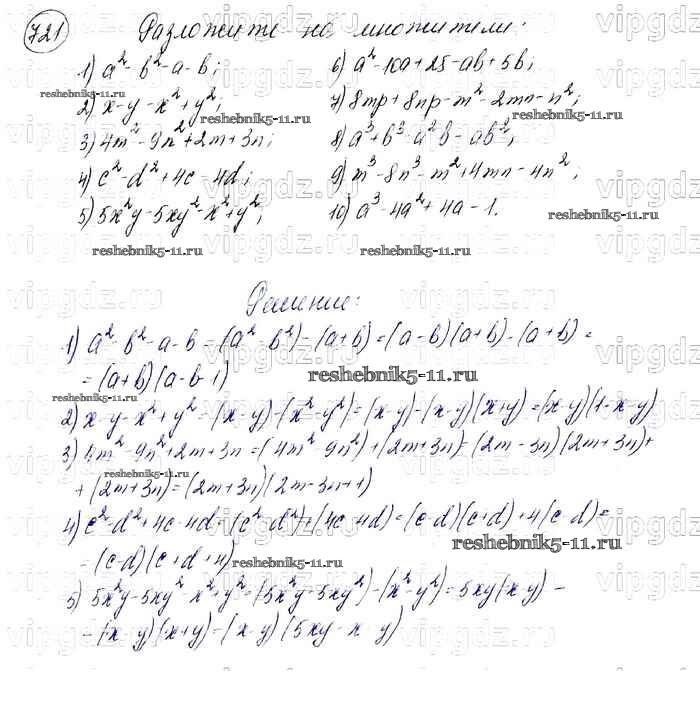 721 Разложите на множители:
1) a² - b² - a - b;
2) x - y - x² + y²;
3) 4m² - 9n² + 2m + 3n;
4) c² - d² + 4c - 4d;
5) 5x²y - 5xy² - x² + y²;
6) a² - 10a + 25 - ab + 5b;
7) 8mp + 8np - m² - 2mn - n²;
8) a³ + b³ - a²b - ab²;
9) m³ - 8n³ - m² + 4mn - 4n²;
10) a³ - 4a² + 4a - 1.
Решение:
1) a² - b² - a - b = (a² - b²) - (a + b) = (a - b)(a + b) - (a + b) =
= (a + b)(a - b - 1)
2) x - y - x² + y² = (x - y) - (x² - y²) = (x - y) - (x - y)(x + y) = (x - y)(1 - x - y)
3) 4m² - 9n² + 2m + 3n = (4m² - 9n²) + (2m + 3n) = (2m - 3n)(2m + 3n) +
+ (2m + 3n) = (2m + 3n)(2m - 3n + 1)
4) c² - d² + 4c - 4d = (c² - d²) + (4c - 4d) = (c - d)(c + d) + 4(c - d) =
= (c - d)(c + d + 4)
5) 5x²y - 5xy² - x² + y² = (5x²y - 5xy²) - (x² - y²) = 5xy(x - y) -
- (x - y)(x + y) = (x - y)(5xy - x - y)
reshebnik5-11.ru
vipgdz.ru